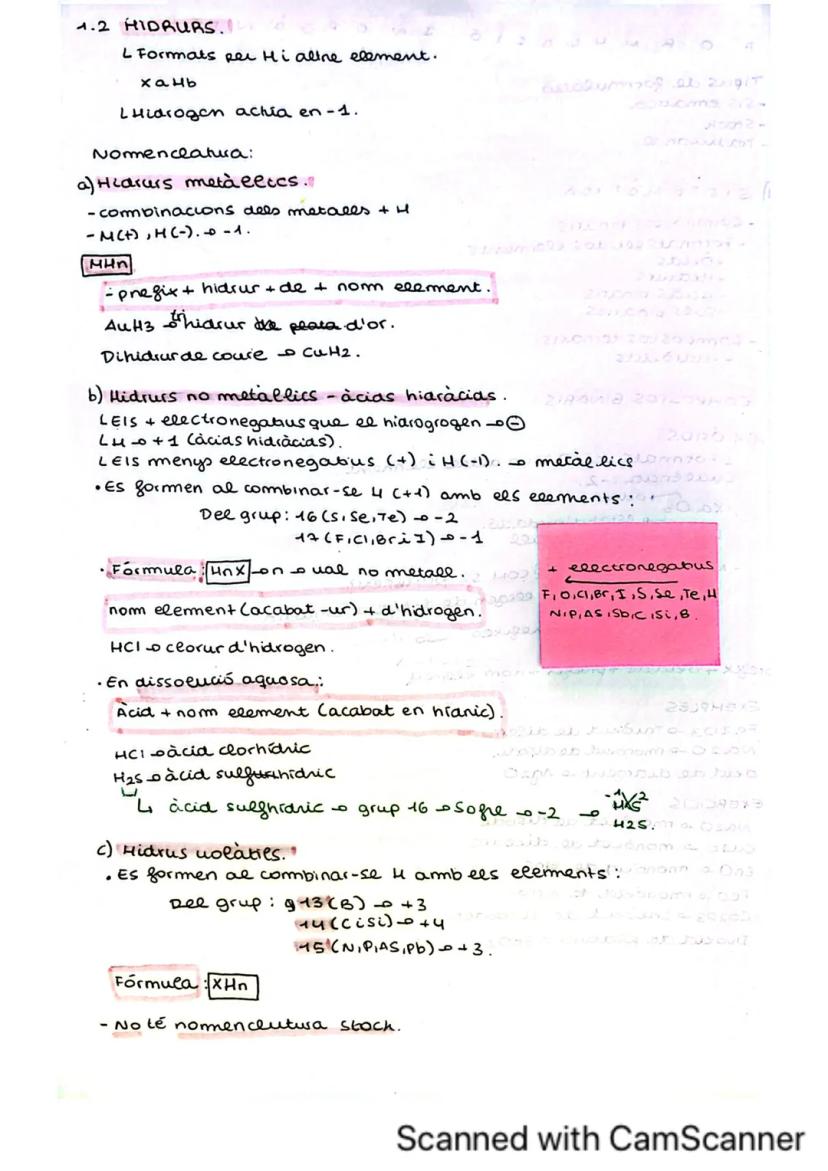 1.2 HIDRURS.
↳ Formats per H i altre element.
XaHb
↳ Hidrogen actúa en -1.
Nomenclatura:
a) Hidrurs metàl·lics.
- combinacions dels metalls + H
- M(+), H(-). → -1.
MHn
- prefix + hidrur + de + nom element.
AuH3 → trihidrur de plata d'or.
Dihidrur de coure → CuH2.
b) Hidrurs no metàl·lics - àcids hidràcids.
↳ Els + electronegatius que el hidrogrogen → ⊖
↳ H → +1 (àcids hidràcids).
↳ Els menys electronegatius (+) i H(-1). → metàl·lics
• Es formen al combinar-se H (+1) amb els elements:
Del grup: 16 (S, Se, Te) → -2
17 (F, Cl, Br i I) → -1
+ electronegatius
F, O, Cl, Br, I, S, Se, Te, H
N, P, As, Sb, C, Si, B.
• Fórmula: HnX → on → val no metall.
nom element (acabat -ur) + d'hidrogen.
HCl → clorur d'hidrogen.
• En dissolució aquosa:
Àcid + nom element (acabat en hídric).
HCl → àcid clorhídric
H2S → àcid sulfurhídric
↳ àcid sulfhídric → grup 16 → Sofre → -2 → -1 HXS 2
H2S.
c) Hidrus volàtils.
• Es formen al combinar-se H amb els elements:
Del grup: g 13 (B) → +3
14 (C i Si) → +4
15 (N, P, As, Pb) → +3.
Fórmula: XHn
- No té nomenclutura stock.
Scanned with CamScanner